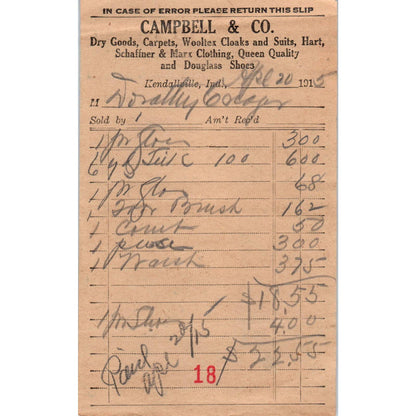 IN CASE OF ERROR PLEASE RETURN THIS SLIP
CAMPBELL & CO.
Dry Goods, Carpets, Wooltex Cloaks and Suits, Hart,
Schaffner & Marx Clothing, Queen Quality
and Douglass Shoes
Kendallville, Ind., Apl 20 1915
M Dorathy
Sold by 1 Am't Rec'd
1 pr 300
6 yd Silk 100 600
1 pr 68
1 Brush 162
1 50
1 300
1 Waist 375
$18.55
1 pr 4.00
Paid Apl 20/15 $22.55
18